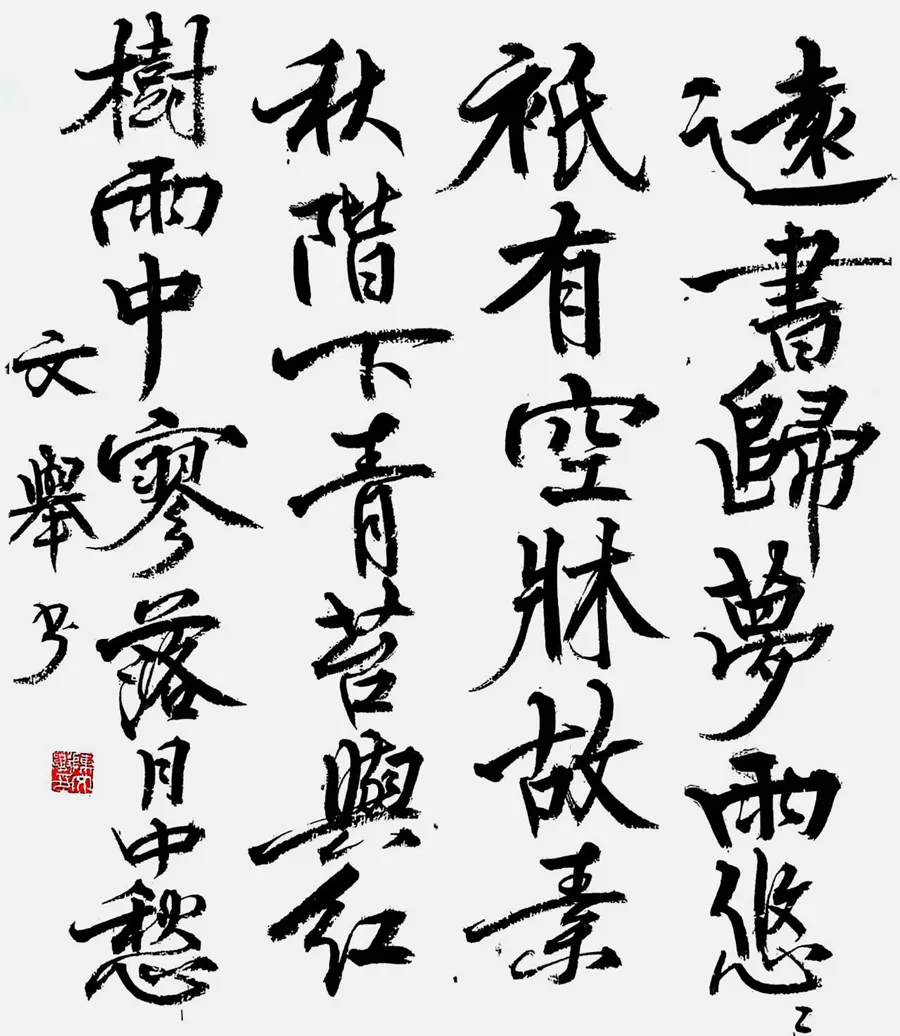 遠書歸夢兩悠々
衹有空牀故素
秋階下青苔與紅
樹雨中寥落月中愁
文舉书